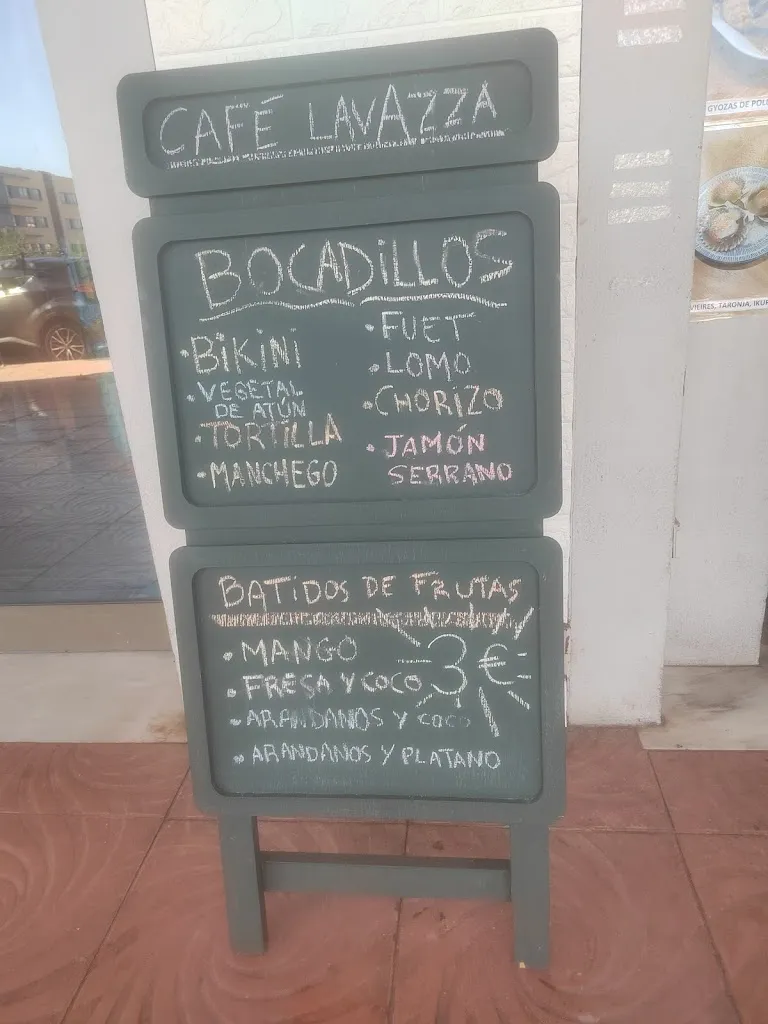 CAFÉ LAVAZZA
BOCADILLOS
• BIKINI
• VEGETAL
DE ATÚN
• TORTILLA
• MANCHEGO
• FUET
• LOMO
• CHORIZO
• JAMÓN
SERRANO
BATIDOS DE FRUTAS
• MANGO
• FRESA Y COCO
• ARANDANOS Y COCO
• ARANDANOS Y PLATANO
3€
GYOZAS DE
VIEIRES, TARONJA,